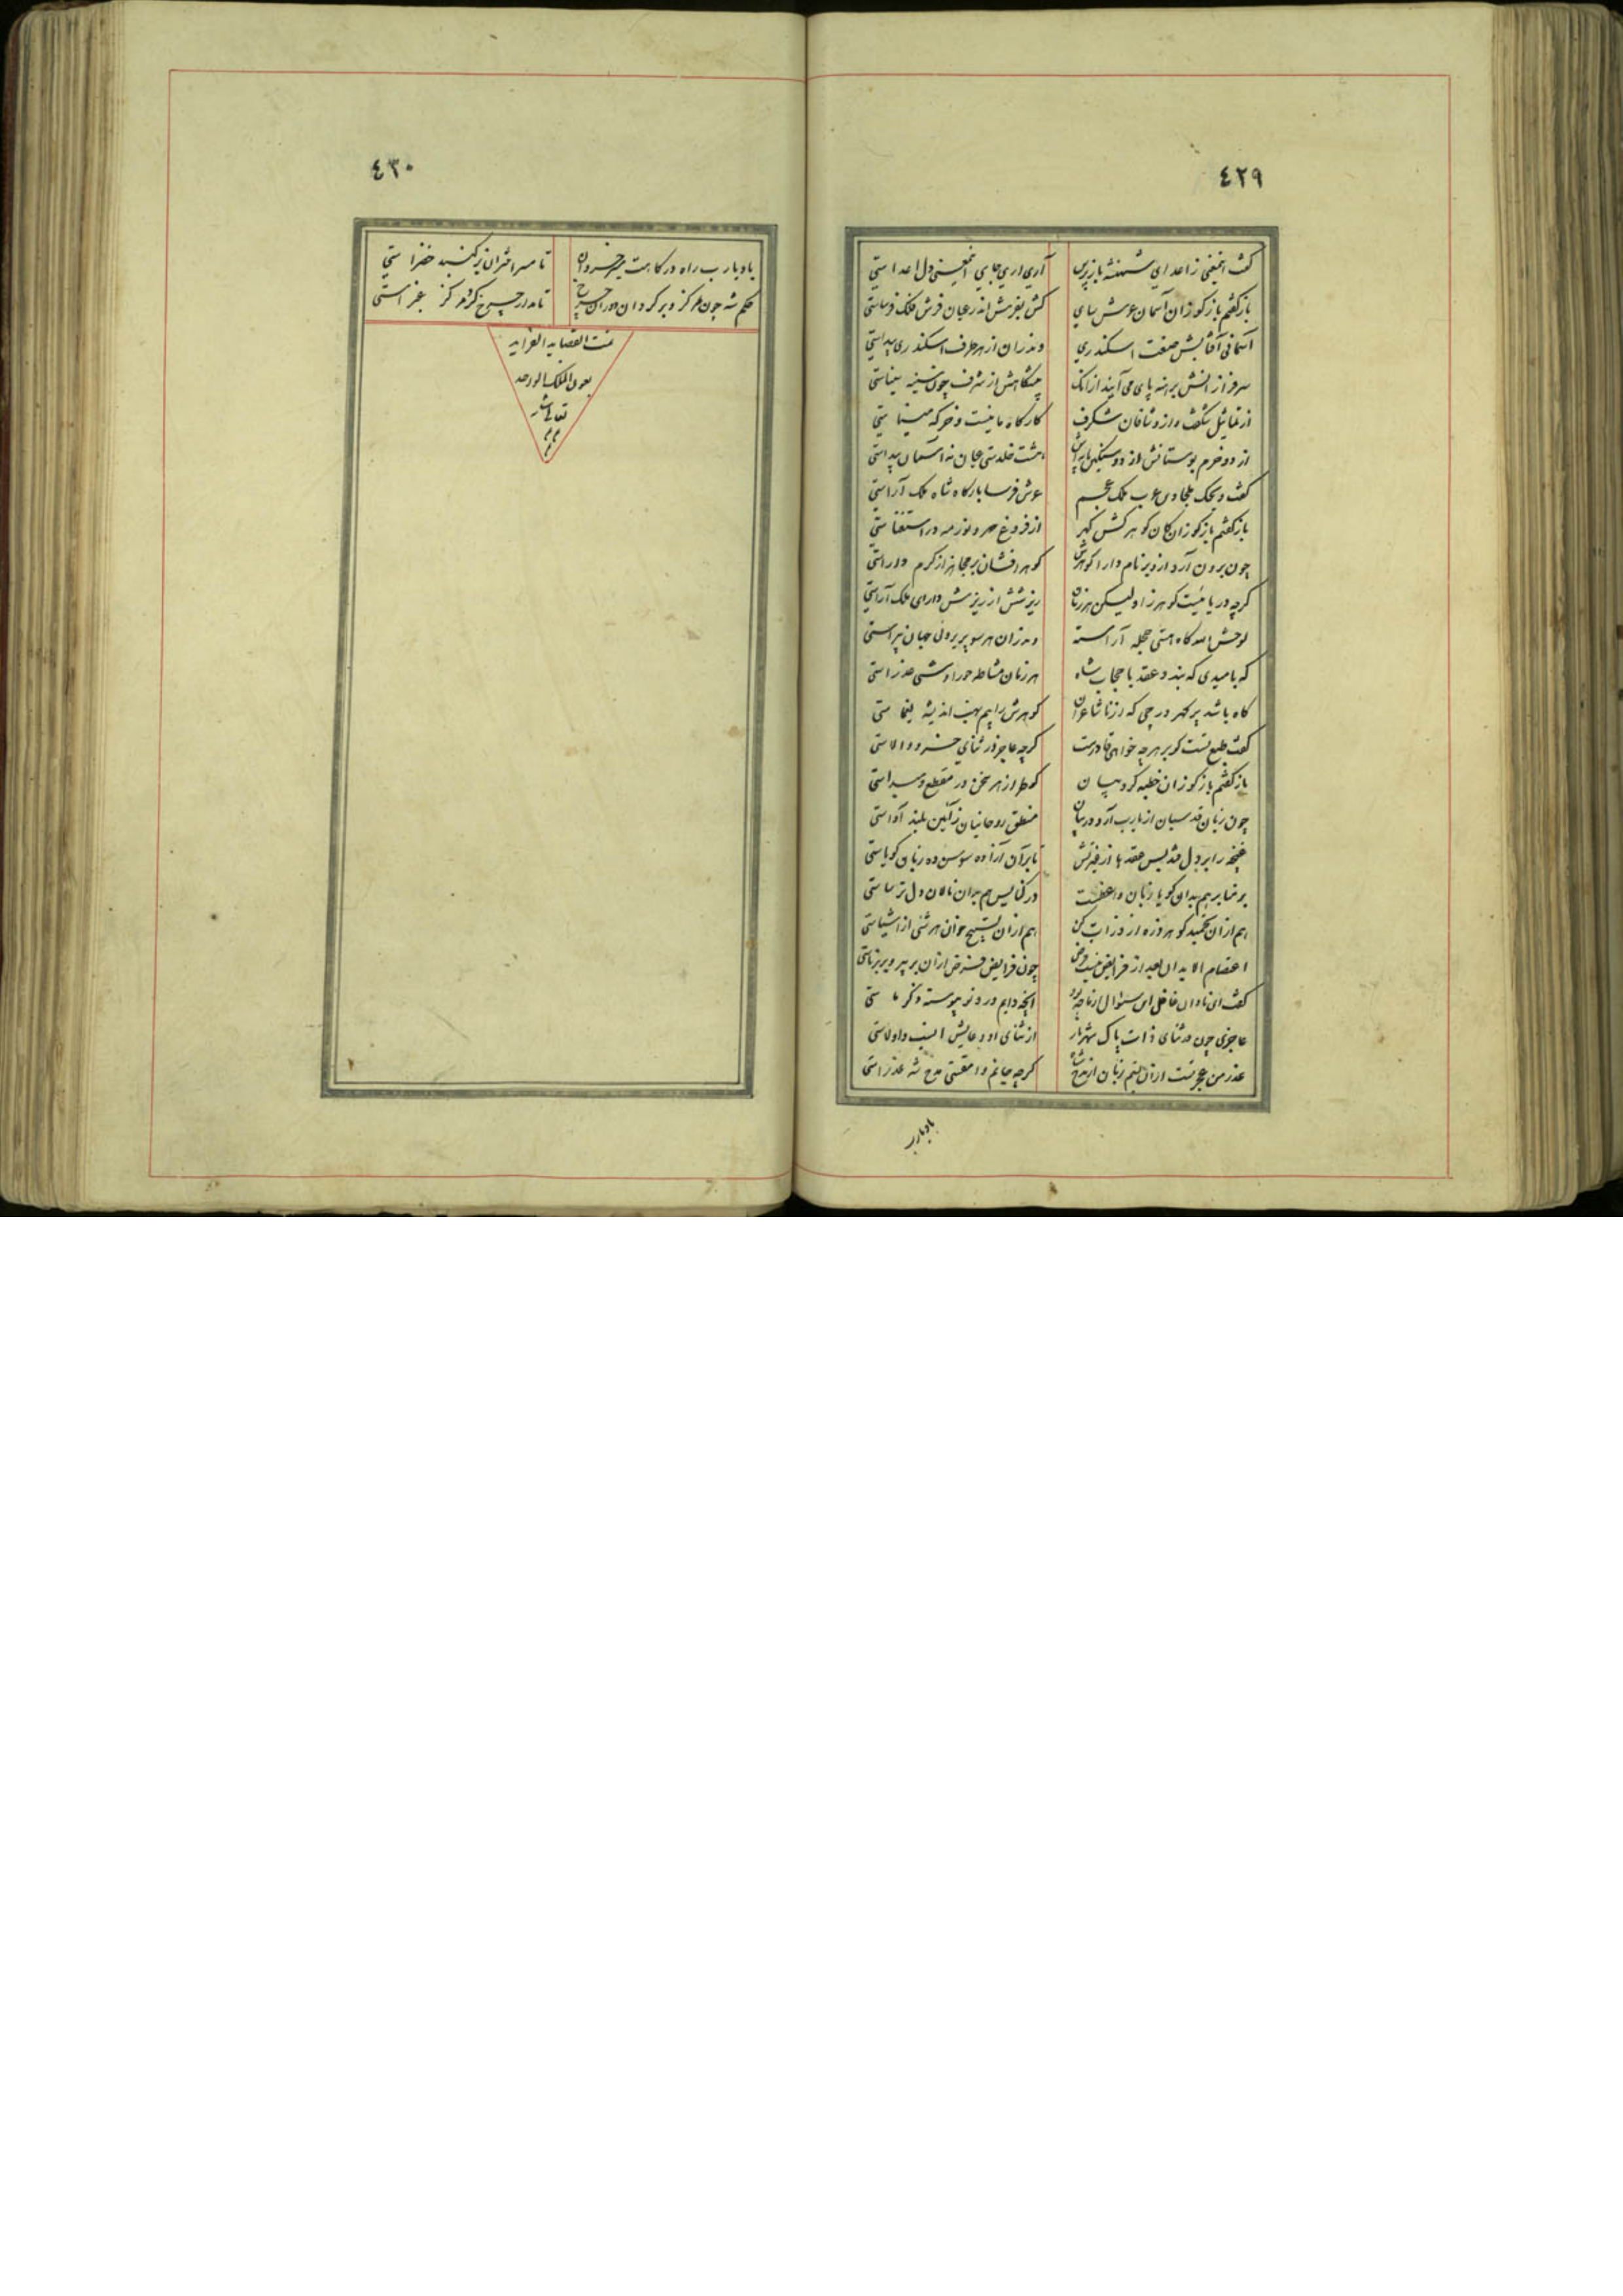 ٤٢٩
گفت اینمعنی ز اعدای شهنشه باز پرس آری آری جای اینمعنی دل اعداستی
باز گفتم باز گو زان آسمان عرش سای کش بفرش اندر عیان فرش فلک فرساستی
آسمانی آفتابش صنعت اسکندری وندران از هر طرف اسکندری پیداستی
سروران سر برهنه پای می آیند از آنک پیشگاهش از شرف چون سینه سیناستی
از تماثیل شگفت و از وثاقان شگرف کارگاه مانیست و خرگه میناستی
از دو خرم بوستانش از دو سنگین هشت خلدستی عیان نه آسمان پیداستی
گفت ویحک ملجاء عرب ملک عجم عرش فرسا بارگاه شاه ملک آراستی
باز گفتم باز گو زان کان گوهر کش گهر از فروغ مهر و نور مه در استغناستی
چون برون آرد از و بر نام دارا گوهرش گوهر افشان بر همه از کرم داراستی
گرچه دریا نیست گوهر زا ولیکن هر زمان ریزشش از ریزش دارای ملک آراستی
لوحش الله گاه هستی حجله آراسته وندران هر سو پریروئی جهان پیراستی
که بامیدی که بندد عقد با حجاب شاه هر زمان مشاطه حورا وشی عذراستی
گاه باشد پر گهر درجی که از شاعران گوهرش را بیم نهب اندیشه یغماستی
گفت طبع تست کو بر هر چه خواهی قادرست گرچه عاجز در ثنای خسرو والاستی
باز گفتم باز گو زان خطبه کروبیان کو طراز هر سخن در مقطع و مبداستی
چون زبان قدسیان از یارب آرد در بیان منطق روحانیان ز آمین بلند آواستی
غنچه را بر دل تقدیس عقدها از غیرتش تا بر آن آزاده سوسن ده زبان گویاستی
بر منابر هم بدان گویا زبان واعظست در کنایس هم بدان نالان دل ترساستی
هم از آن تحمید گو هر ذره از ذرات کن هم از آن تسبیح خوان هر شئی از اشیاستی
اعتصام لابد ان بعد از فرایض نیست فرض چون فرایض فرض از آن بر پیر و بر برناستی
گفت ای نادان غافل این سئوال از ما چه بود آنچه دایم ورد تو پیوسته ذکر ماستی
عاجزی چون در ثنای ذات پاک شهریار از ثنای او دعایش انسب و اولاستی
عذر من عجزست از آن بستم زبان از مدح شاه گرچه جانم وامقستی مدح شه عذراستی
باد یارب
٤٣٠
باد یارب راه درگاهت خسروان تا سر اختران بر گنبد خضراستی
حکم شه چون مرکز و بر گرد آن دوران چرخ تا مدار چرخ گرد مرکز غبراستی
تمت القصاید الغرائیه
بعون الملک
تعالی شانه
م م
م